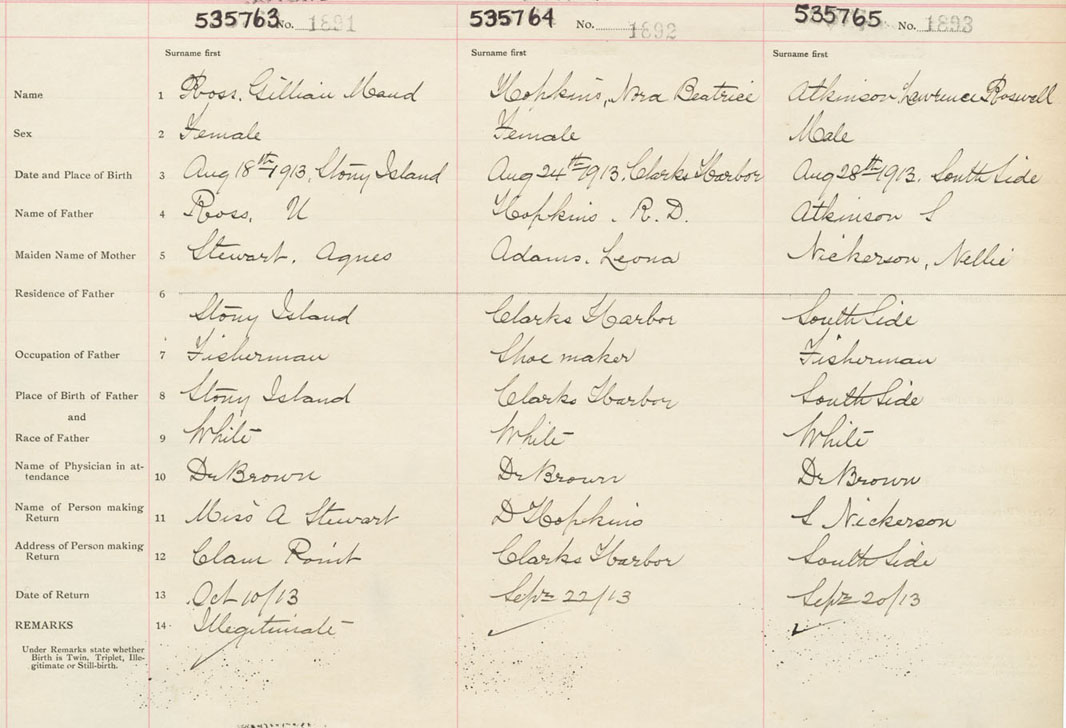 535763 No. 1891 535764 No. 1892 535765 No. 1893
Surname first Surname first Surname first
Name 1 Ross, Gillian Maud Hopkins, Nora Beatrice Atkinson Lawrence Roswell
Sex 2 Female Female Male
Date and Place of Birth 3 Aug 18th 1913, Stony Island Aug 24th 1913. Clarks Harbor Aug 28th 1913. South Side
Name of Father 4 Ross, U Hopkins. R.D. Atkinson S
Maiden Name of Mother 5 Stewart, Agnes Adams. Leona Nickerson, Nellie
Residence of Father 6
Stony Island Clarks Harbor South Side
Occupation of Father 7 Fisherman Shoe maker Fisherman
Place of Birth of Father 8 Stony Island Clarks Harbor South Side
and
Race of Father 9 White White White
Name of Physician in at-
tendance 10 Dr Brown Dr Brown Dr Brown
Name of Person making
Return 11 Miss A Stewart D Hopkins S Nickerson
Address of Person making
Return 12 Clam Point Clarks Harbor South Side
Date of Return 13 Oct 10/13 Sept 22/13 Sept 20/13
REMARKS 14 Illegitimate
Under Remarks state whether
Birth is Twin, Triplet, Ille-
gitimate or Still-birth.